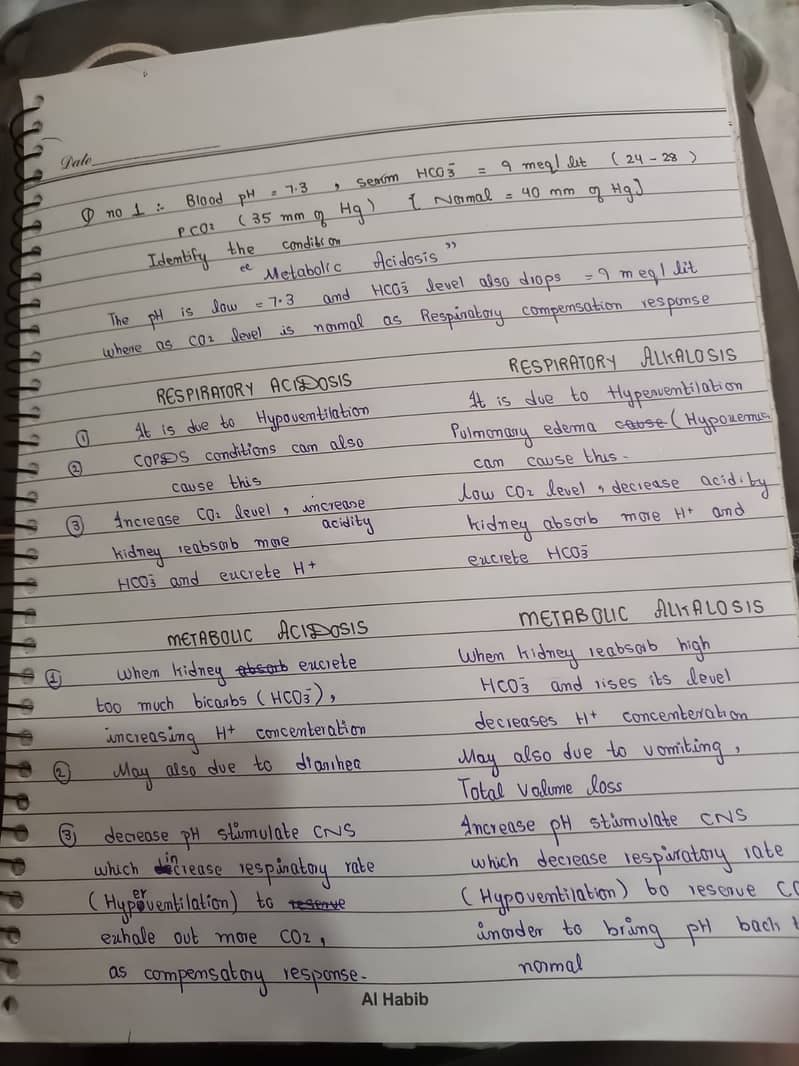 Date
Q no 1 :- Blood pH = 7.3 , serum HCO3⁻ = 9 meq/lit (24-28)
PCO2 (35 mm of Hg) [Normal = 40 mm of Hg]
Identify the condition
"Metabolic Acidosis"
The pH is low = 7.3 and HCO3⁻ level also drops = 9 meq/lit
where as CO2 level is normal as Respiratory compensation response
RESPIRATORY ACIDOSIS
① It is due to Hypoventilation
② COPDS conditions can also
cause this
③ Increase CO2 level, increase
acidity
kidney reabsorb more
HCO3⁻ and excrete H+
RESPIRATORY ALKALOSIS
It is due to Hyperventilation
Pulmonary edema cause (Hypoxemia
can cause this.
low CO2 level, decrease acidity
kidney absorb more H+ and
excrete HCO3⁻
METABOLIC ACIDOSIS
① When kidney absorb excrete
too much bicarbs (HCO3⁻),
increasing H+ concenteration
② May also due to diarrhea
③ decrease pH stimulate CNS
which increase respiratory rate
(Hyperventilation) to reserve
exhale out more CO2,
as compensatory response.
METABOLIC ALKALOSIS
When kidney reabsorb high
HCO3⁻ and rises its level
decreases H+ concenteration
May also due to vomiting,
Total Volume loss
Increase pH stimulate CNS
which decrease respiratory rate
(Hypoventilation) to reserve CO
inorder to bring pH back t
normal
Al Habib